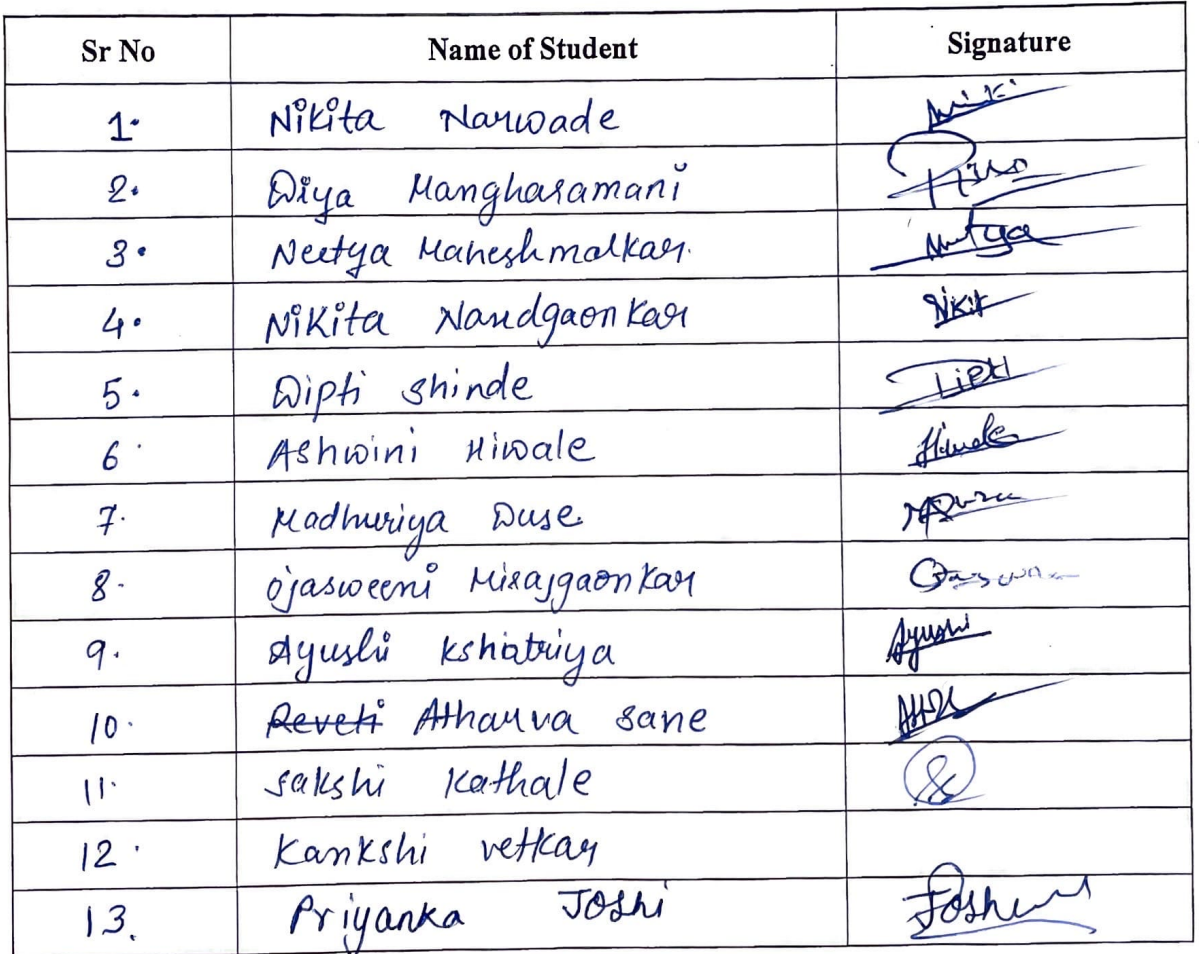 Sr No Name of Student Signature
1. Nikita Narwade Niki
2. Diya Mangharamani
3. Neetya Maheshmalkar. Neetya
4. Nikita Nandgaonkar Nikit
5. Dipti Shinde Dipti
6. Ashwini Hiwale Hiwale
7. Madhuriya Duse
8. Ojasweeni Mirajgaonkar
9. Ayushi Kshatriya Ayushi
10. Reveti Atharva Sane
11. Sakshi Kathale
12. Kankshi Vetkar
13. Priyanka Joshi Joshi